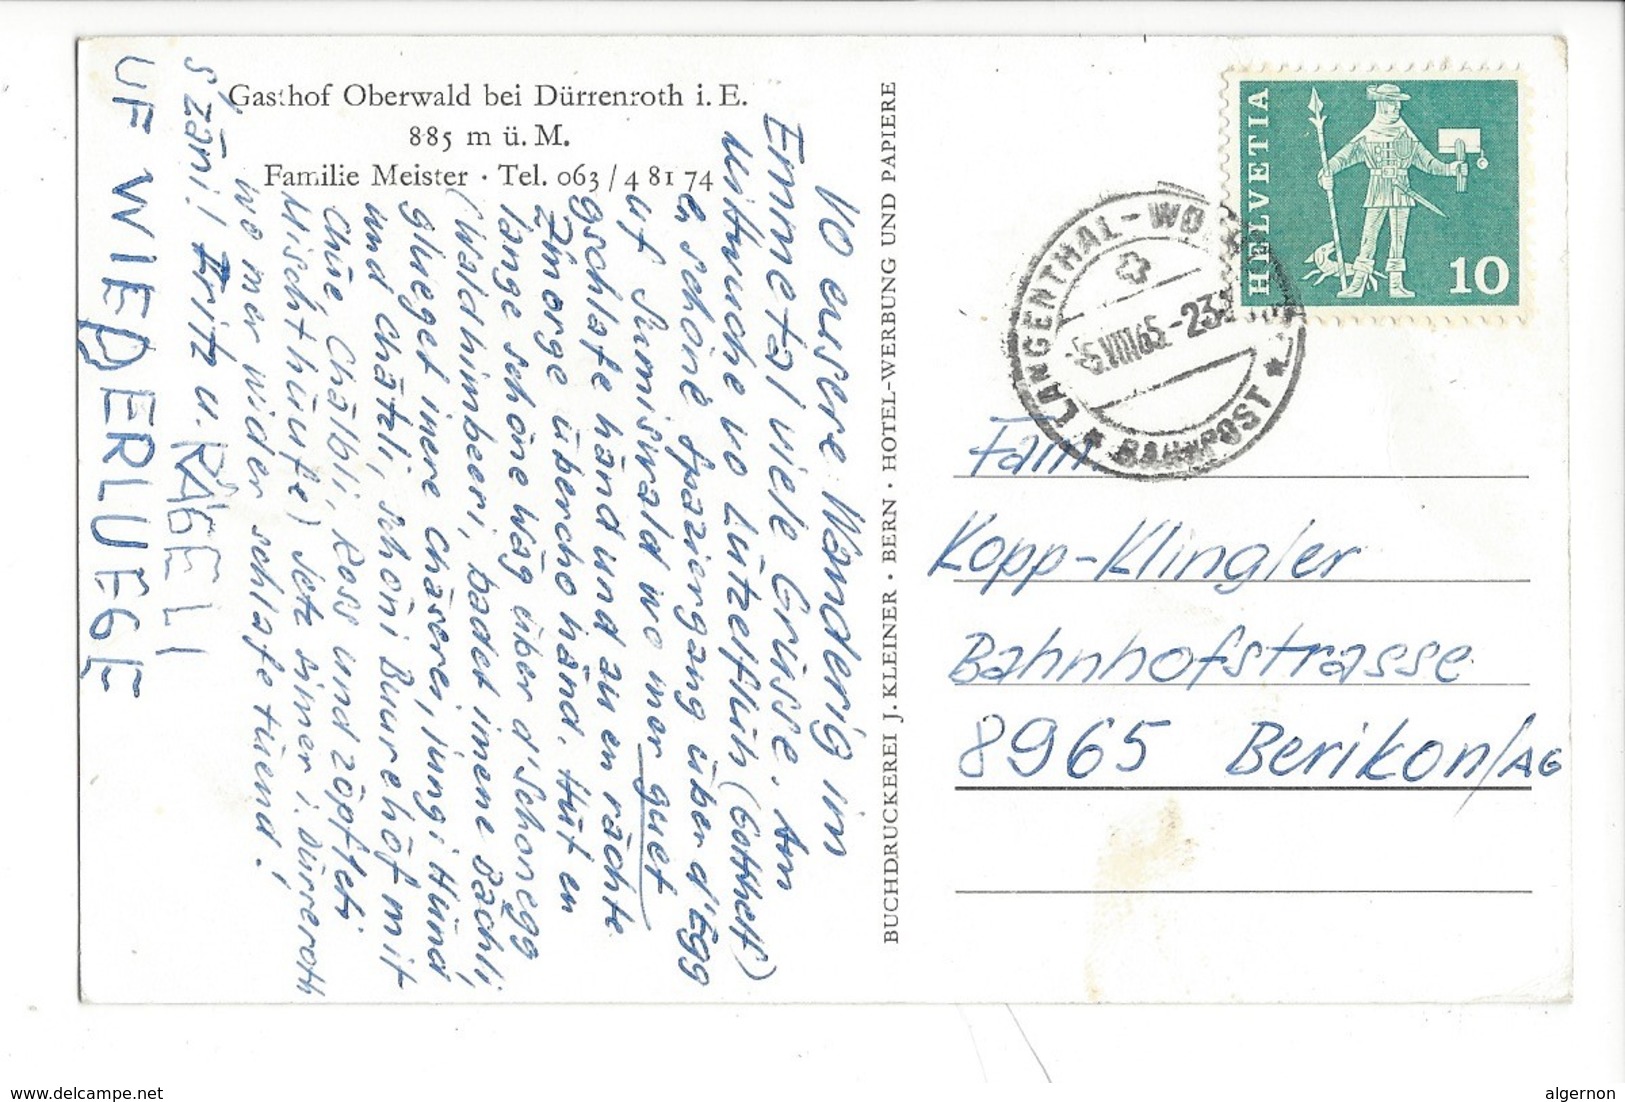 Gasthof Oberwald bei Dürrenroth i. E.
885 m ü. M.
Familie Meister · Tel. 063 / 4 81 74
Vo eusere Wanderig im
Emmetal viele Grüsse. Am
Mittwuche vo Lützelflüh (Gotthelf)
e schöne Spaziergang über d'Egg
uf Sumiswald wo mer guet
gschlafe händ und au en rächte
Zmorge übercho händ. Hüt en
lange schöne Wäg über d'Schonegg
(Waldhimbeeri, badet imene Bächli,
glueget inere Chäserei, jungi Hünd
und Chätzli, schöni Buurehöf mit
Chüe, Chälbli, Ross und zöpfleti
Mischthüüfe) Jetz simer i. Dürreroth
wo mer wider schlafe tüend!
S'zäni! Fritz u. RÄGELI
UF WIEDERLUEGE
BUCHDRUCKEREI J. KLEINER · BERN · HOTEL-WERBUNG UND PAPIERE
HELVETIA
10
LANGENTHAL-WO
6.VIII65.-23
BAHNPOST
Fam
Kopp-Klingler
Bahnhofstrasse
8965 Berikon/AG
www.delcampe.net
algernon